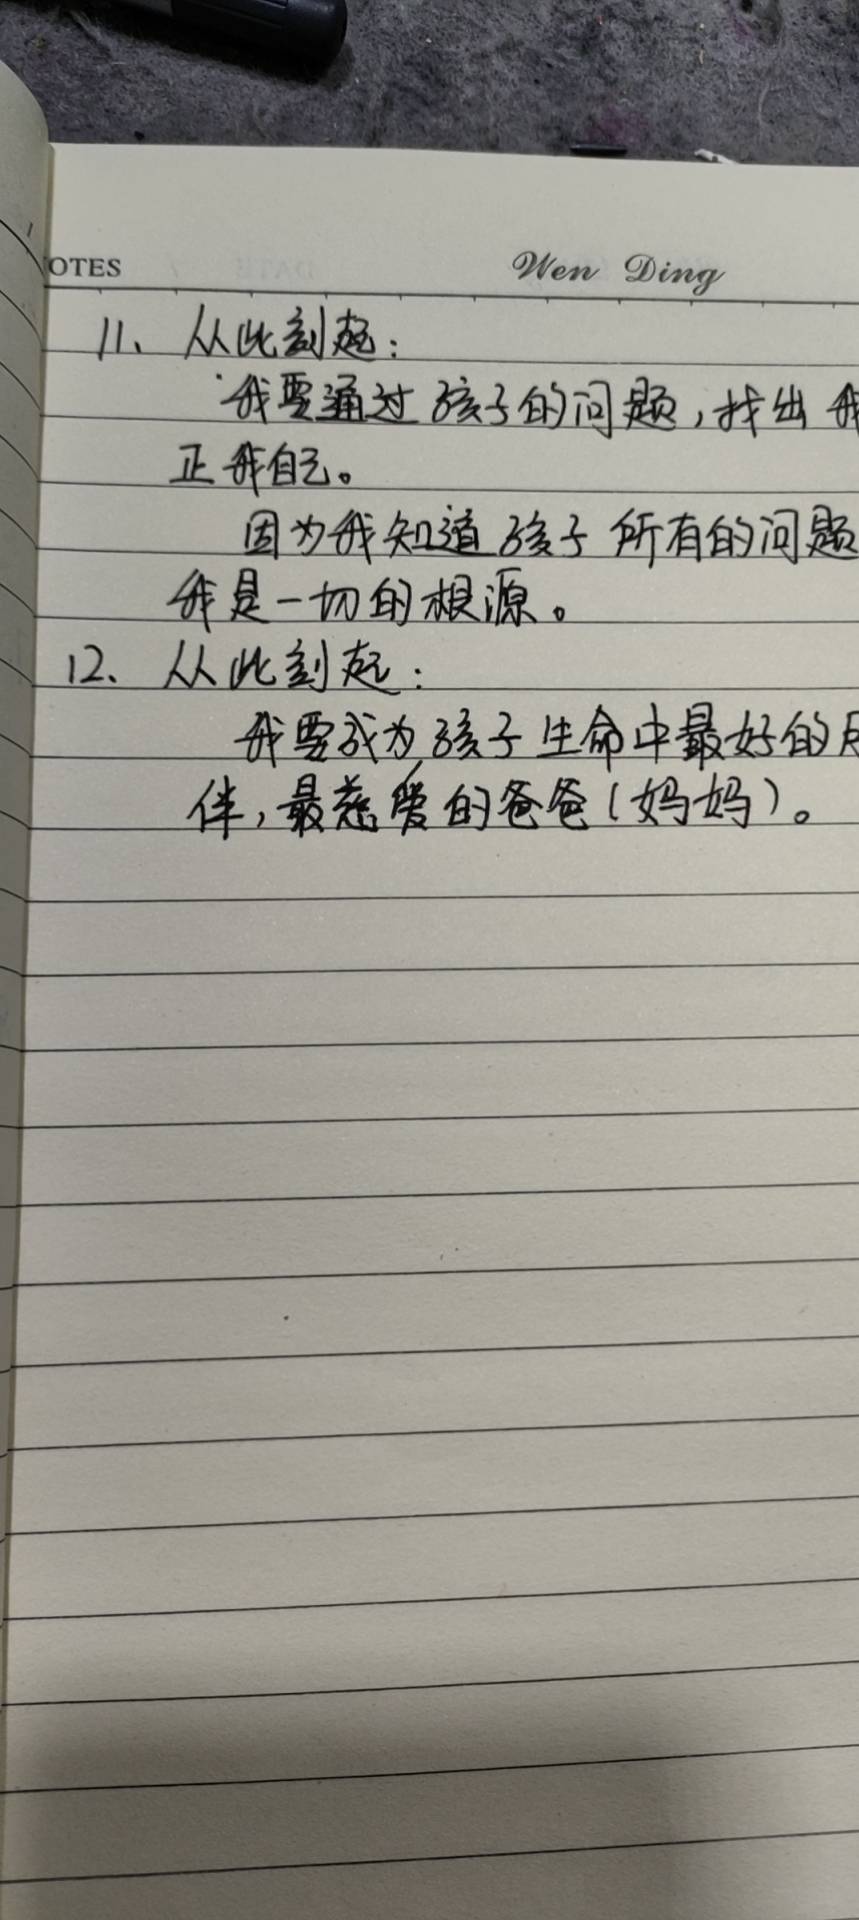 OTES Wen Ding
11、从此刻起：
我要通过孩子的问题，找出我
正我自己。
因为我知道孩子所有的问题
我是一切的根源。
12、从此刻起：
我要成为孩子生命中最好的
伴，最慈爱的爸爸（妈妈）。